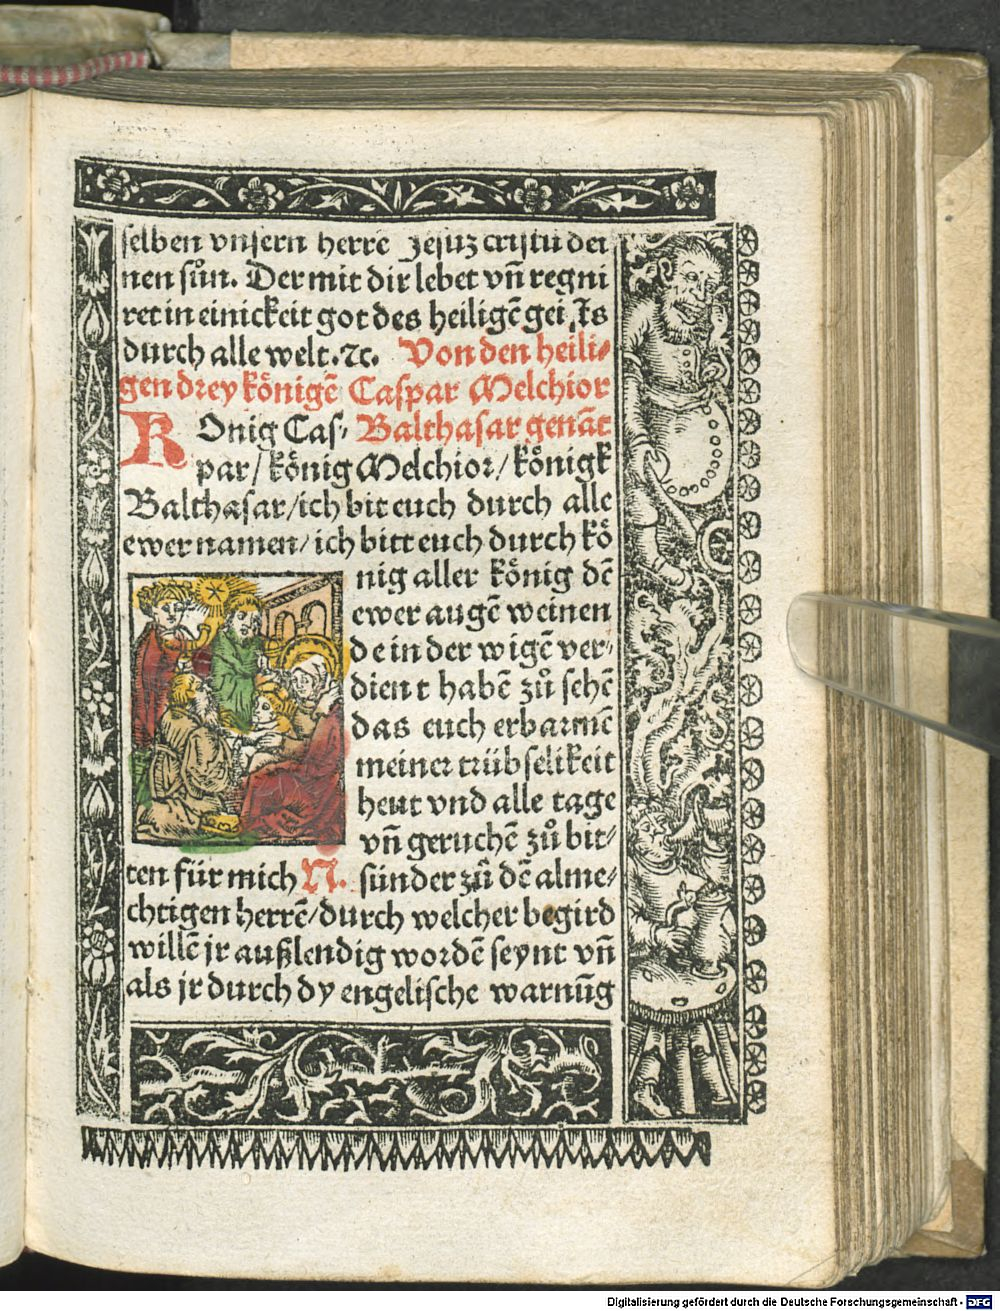 selben vnsern herrē Jesuz cristū dei
nen sůn. Der mit dir lebet vñ regni
ret in einickeit got des heiligē gei ts
durch alle welt.⁊c. Von den heili⸗
gen drey kőnigē Caspar Melchior
KOnig Cas⸗ Balthasar genāt
par/ kőnig Melchior/ kőnigk
Balthasar/ich bit euch durch alle
ewer namen/ich bitt euch durch kő
nig aller kőnig dē
ewer augē weinen
de in der wigē ver⸗
dient habē zů sehē
das euch erbarmē
meiner trübselikeit
heut vnd alle tage
vñ geruchē zů bit⸗
ten für mich N. sünder zů dē alme⸗
chtigen herrē/durch welcher begird
willē jr außlendig wordē seynt vñ
als jr durch dy engelische warnūg
Digitalisierung gefördert durch die Deutsche Forschungsgemeinschaft - DFG